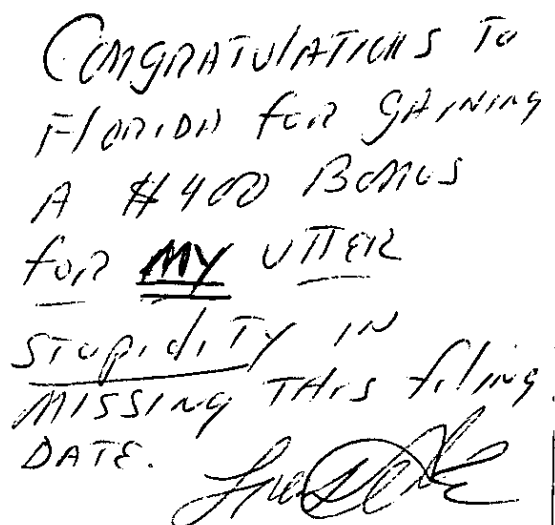 CONGRATULATIONS TO
FLORIDA FOR GAINING
A #400 BONUS
FOR MY UTTER
STUPIDITY IN
MISSING THIS FILING
DATE.